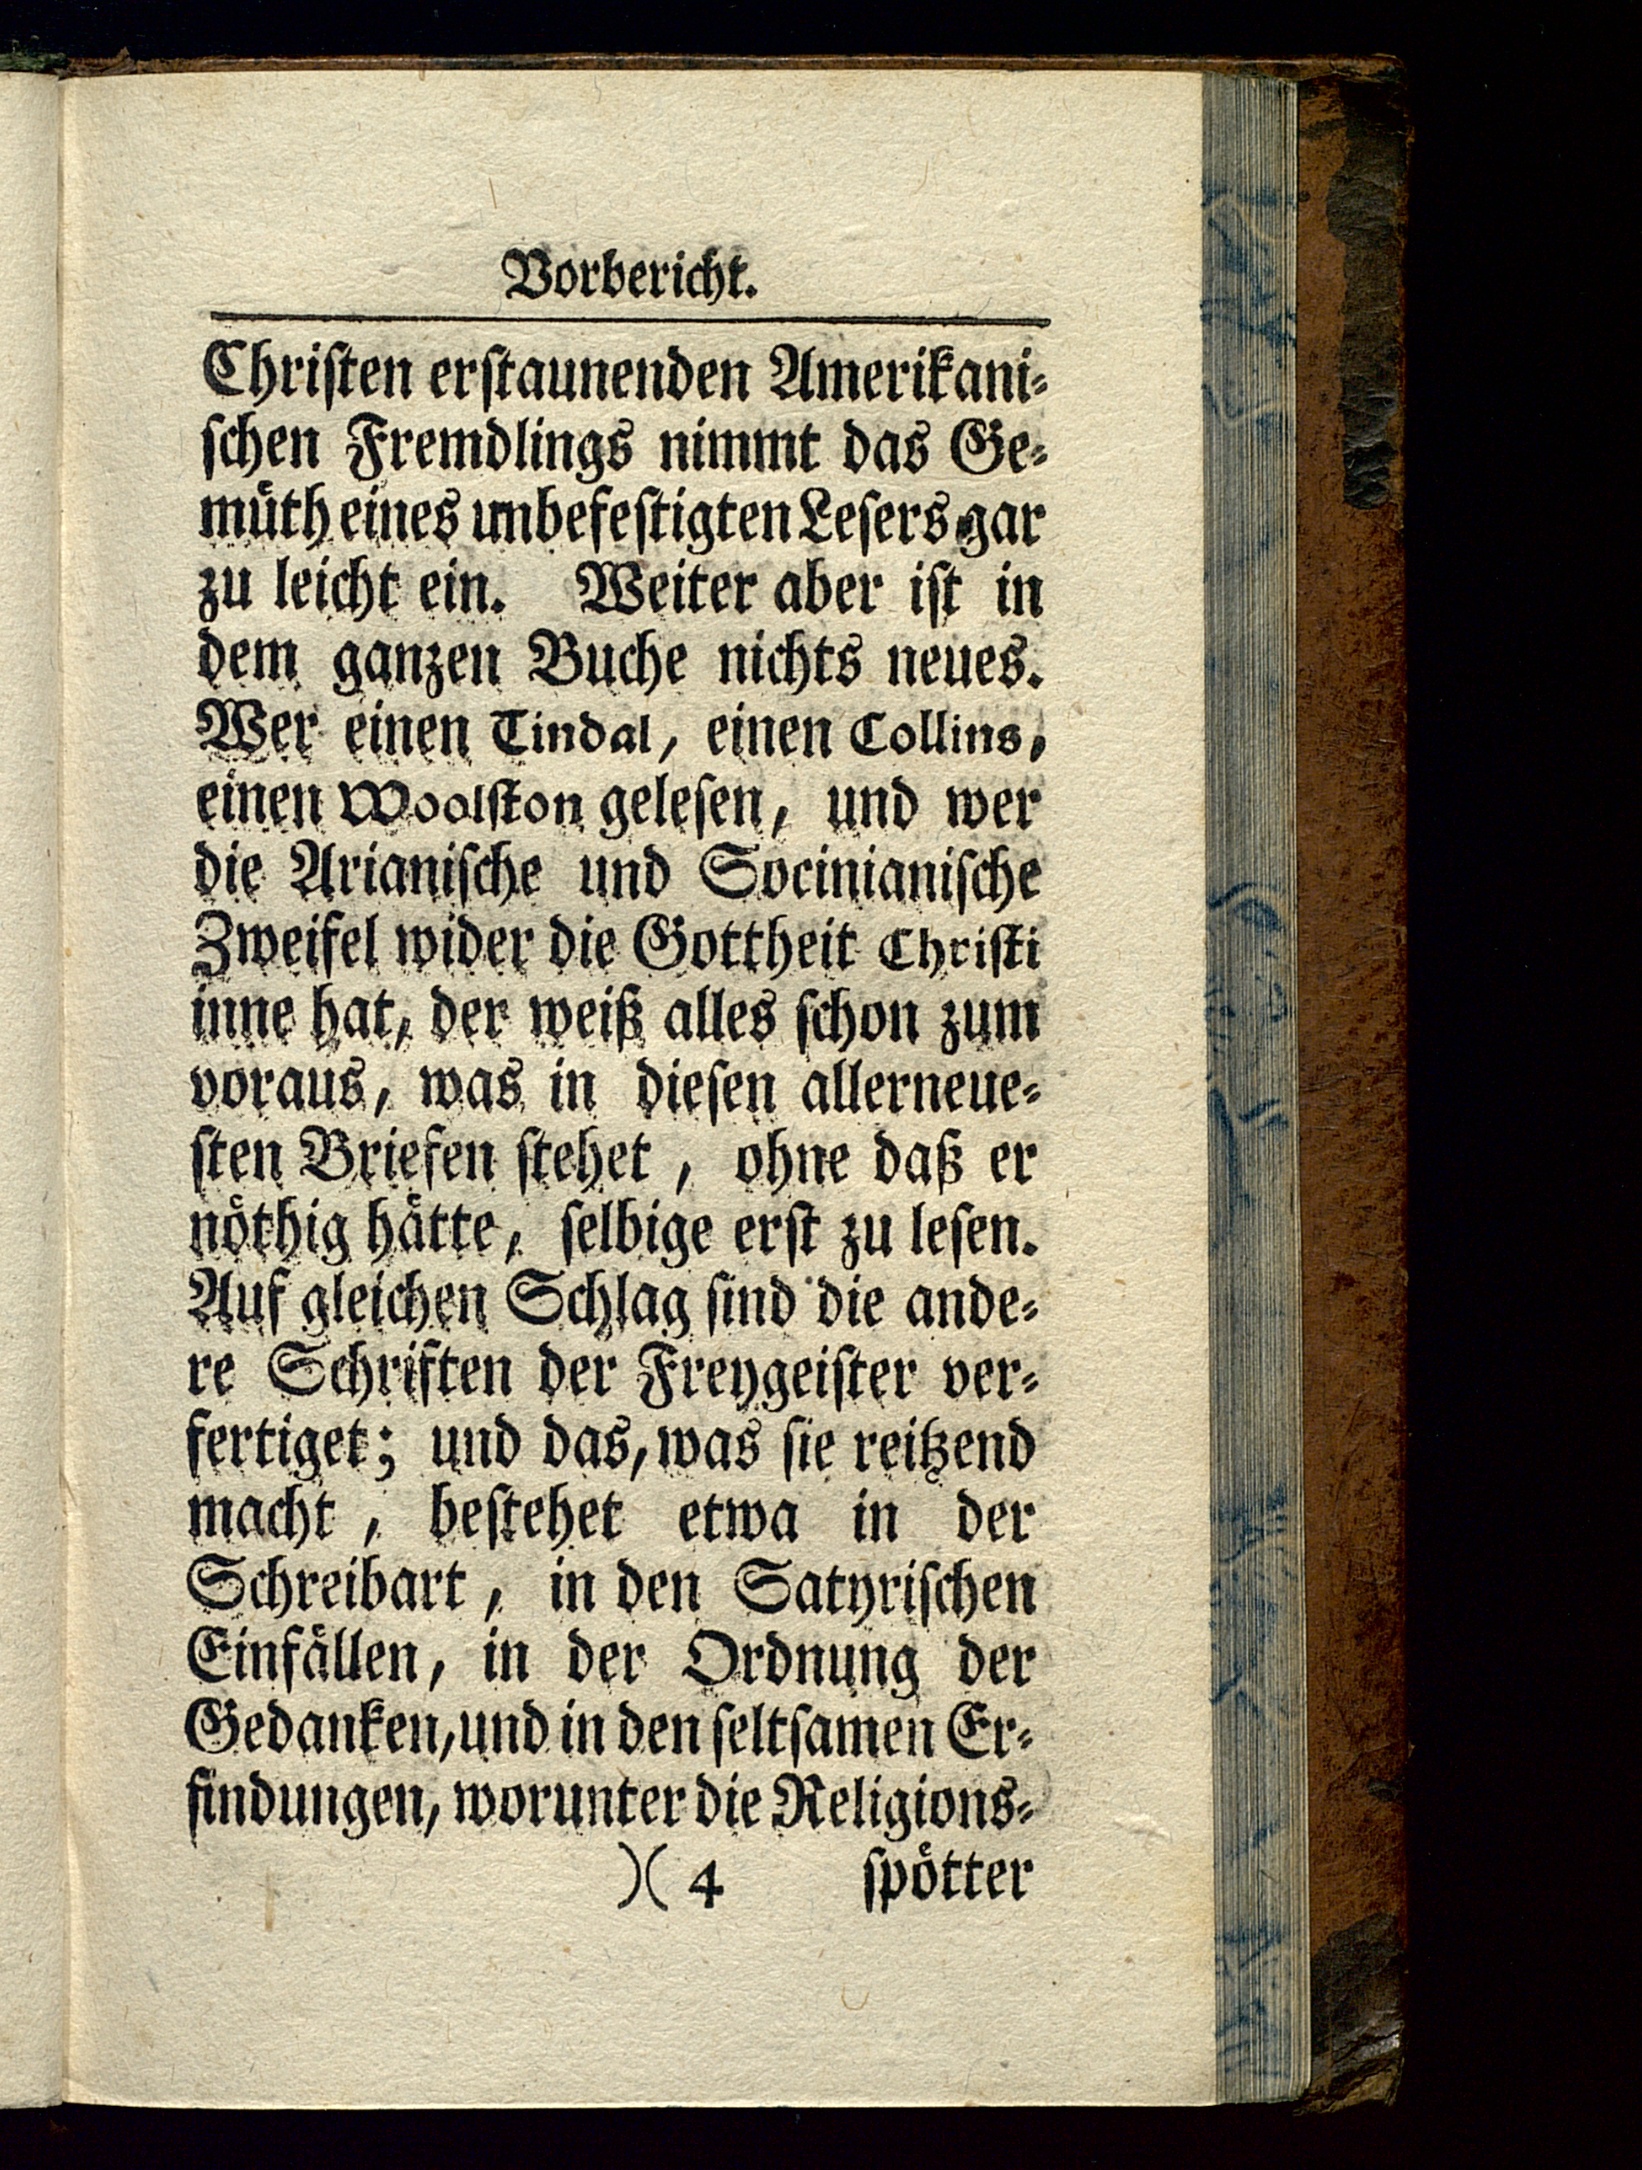 Vorbericht.
Chriſten erſtaunenden Amerikani⸗
ſchen Fremdlings nimmt das Ge⸗
muͤth eines unbefeſtigten Leſers gar
zu leicht ein. Weiter aber iſt in
dem ganzen Buche nichts neues.
Wer einen Tindal, einen Collins,
einen Woolſton geleſen, und wer
die Arianiſche und Socinianiſche
Zweifel wider die Gottheit Chriſti
inne hat, der weiß alles ſchon zum
voraus, was in dieſen allerneue⸗
ſten Briefen ſtehet, ohne daß er
noͤthig haͤtte, ſelbige erſt zu leſen.
Auf gleichen Schlag ſind die ande⸗
re Schriften der Freygeiſter ver⸗
fertiget; und das, was ſie reitzend
macht, beſtehet etwa in der
Schreibart, in den Satyriſchen
Einfaͤllen, in der Ordnung der
Gedanken, und in den ſeltſamen Er⸗
findungen, worunter die Religions⸗
)( 4 ſpoͤtter